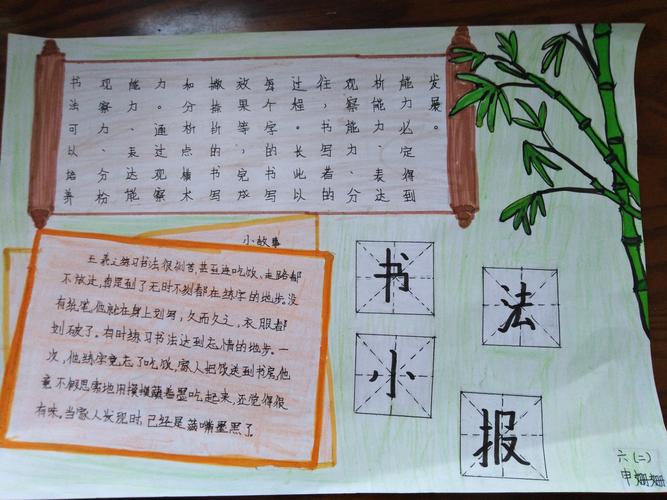 书法可以培养
观察力、分析
能力、表达能
力。通过观察
如分析点横术
撇捺折的书写
放果等,完成
每个字的书写
过程。长此以
往,书写者的
观察能力、分
析能力、表达
能力必定得到
发展。
小故事
王羲之练习书法很刻苦,甚至连吃饭、走路都
不放过,真是到了无时不刻都在练字的地步。没
有纸笔,他就在身上划写,久而久之,衣服都
划破了。有时练习书法达到忘情的地步。一
次,他练字竟忘了吃饭,家人把饭送到书房,他
竟不假思索地用馍馍蘸着墨吃起来,还觉得很
有味。当家人发现时,已经是满嘴墨黑了。
书法
小报
六(二)
申姗姗